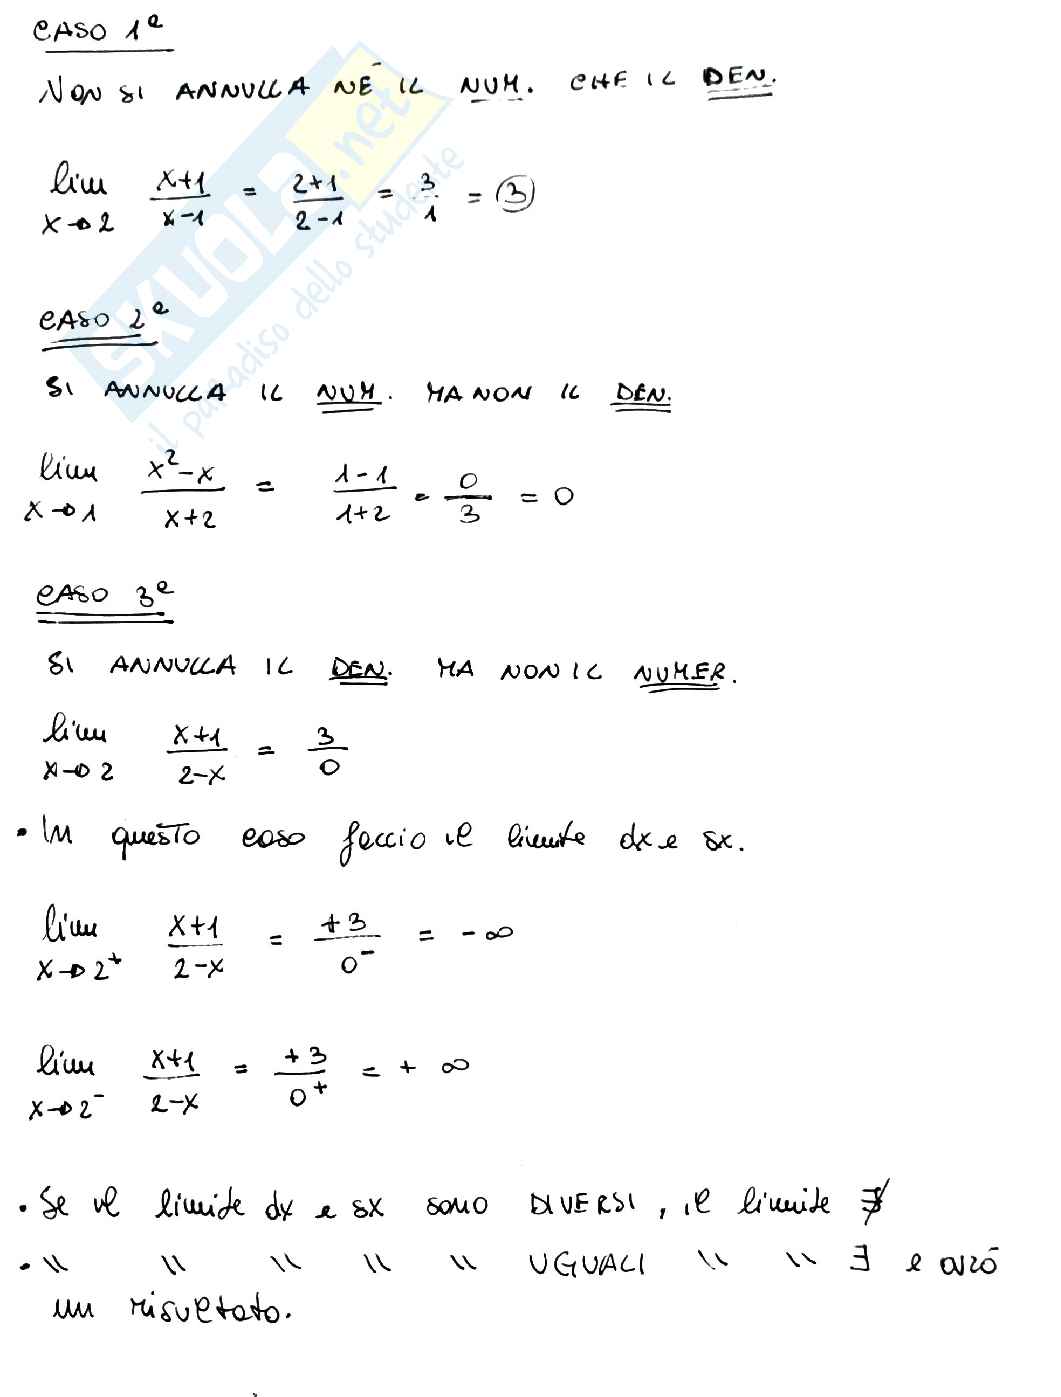 CASO 1º
NON SI ANNULLA NÉ IL NUM. CHE IL DEN.
lim x→2 (x+1)/(x-1) = (2+1)/(2-1) = 3/1 = 3
CASO 2º
SI ANNULLA IL NUM. MA NON IL DEN.
lim x→1 (x²-x)/(x+2) = (1-1)/(1+2) = 0/3 = 0
CASO 3º
SI ANNULLA IL DEN. MA NON IL NUMER.
lim x→2 (x+1)/(2-x) = 3/0
• In questo caso faccio il limite dx e sx.
lim x→2⁺ (x+1)/(2-x) = +3/0⁻ = -∞
lim x→2⁻ (x+1)/(2-x) = +3/0⁺ = +∞
• Se il limite dx e sx sono DIVERSI, il limite ∄
• \\ \\ \\ \\ \\ UGUALI \\ \\ ∃ e avrò
un risultato.
SKUOLA.net
il paradiso dello studente